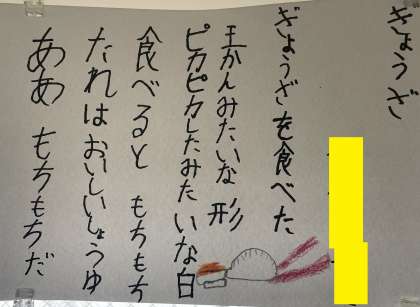 ぎょうざ
ぎょうざを食べた
王かんみたいな形
ピカピカしたみたいな白
食べると もちもち
たれはおいしいしょうゆ
ああ もちもちだ